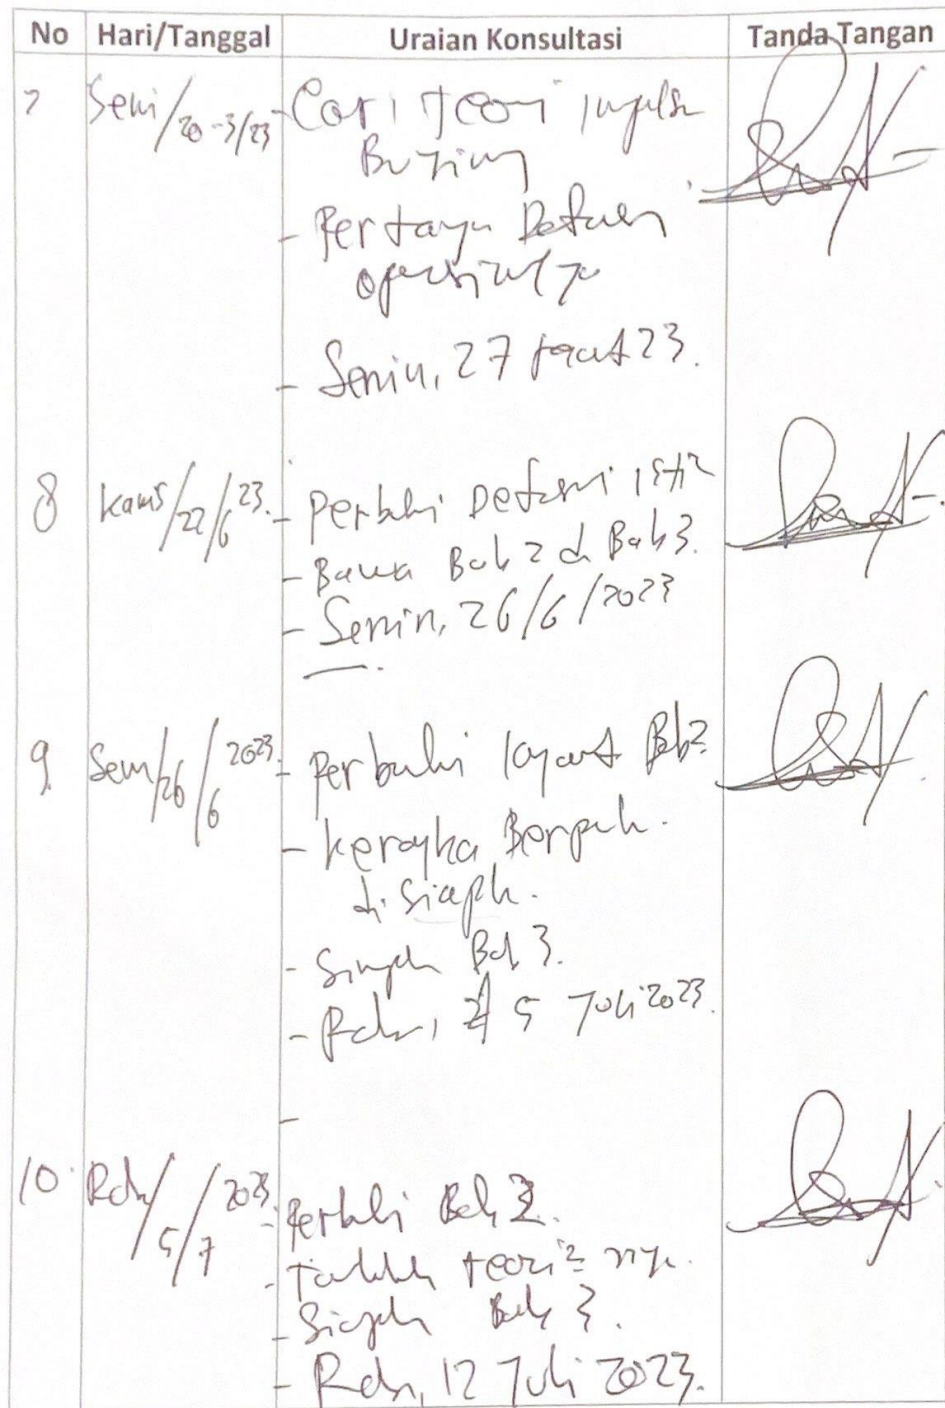 No Hari/Tanggal Uraian Konsultasi Tanda Tangan
7 Seni/20-3/23 - Cari teori impulse
Buying
- Pertanyn
- Senin, 27 23.
8 Kamis/22/6 23. - Perbaki Defensi isti²
- Bawa Bab 2 d Bab 3.
- Senin, 26/6/2023
9 Senin/26/6 2023. - Perbaiki layout Bab 2
- Kerangka Berpik.
di siapk.
- Siapk Bab 3.
- Rabu, 5 Juli 2023.
-
10. Rabu/5/7 2023. - Perbaki Bab 2.
- teori² nya.
- Siapk Bab 3.
- Rabu, 12 Juli 2023.